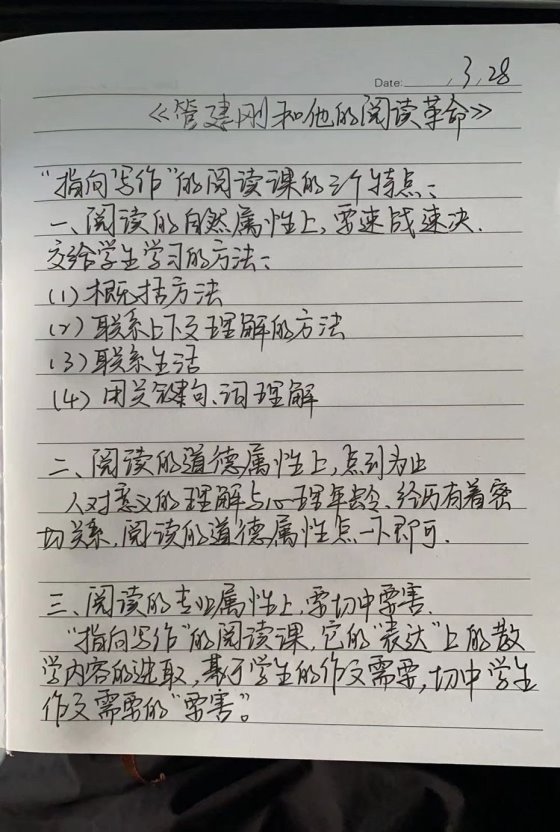 Date: 3.28
《管建刚和他的阅读革命》
“指向写作”的阅读课的三个特点：
一、阅读的自然属性上，要速战速决．
交给学生学习的方法：
(1) 概括方法
(2) 联系上下文理解的方法
(3) 联系生活
(4) 用关键句、词理解
二、阅读的道德属性上，点到为止
人对意义的理解与心理年龄、经历有着密
切关系，阅读的道德属性点一下即可．
三、阅读的专业属性上，要切中要害．
“指向写作”的阅读课，它的“表达”上的教
学内容的选取，基于学生的作文需要，切中学生
作文需要的“要害”。